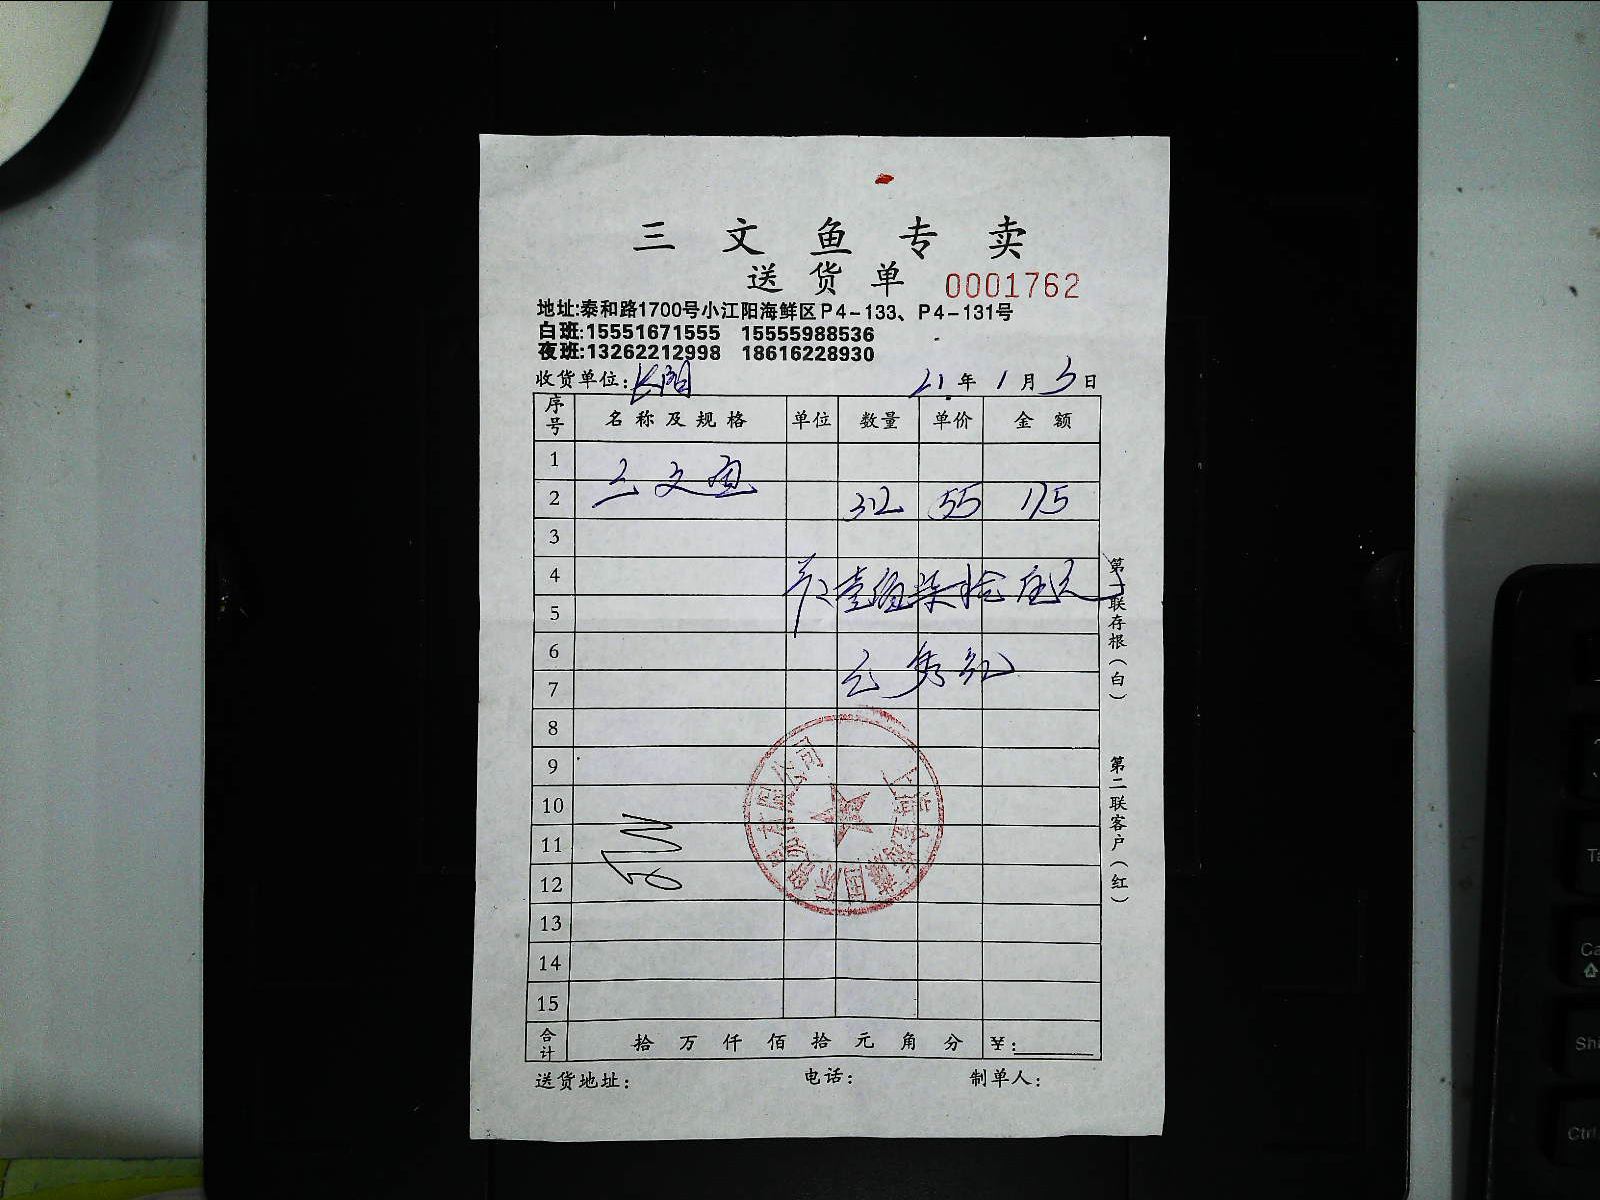 三文鱼专卖
送货单 0001762
地址:泰和路1700号小江阳海鲜区P4-133、P4-131号
白班:15551671555 15555988536
夜班:13262212998 18616228930
收货单位: 21年1月3日
序号 名称及规格 单位 数量 单价 金额
1
三文鱼
2 32 55 175
3
4
壹佰柒拾伍元
5
6
7
8
9
10
11
12
13
14
15
合计 拾 万 仟 佰 拾 元 角 分 ¥:
送货地址: 电话: 制单人:
第一联存根(白)
第二联客户(红)
有限公司
Ta
Ca
Shi
Ctrl